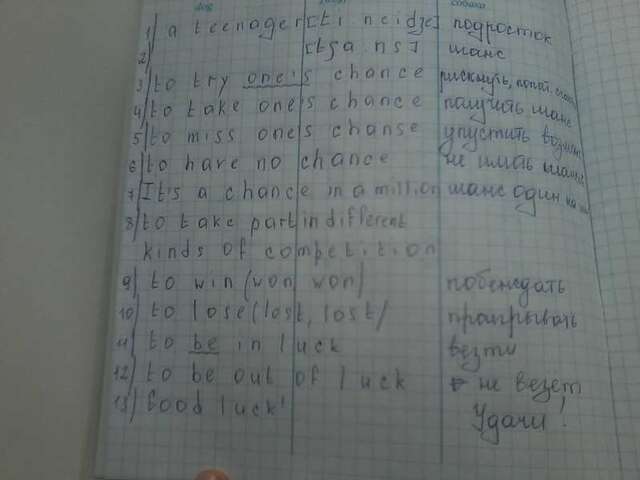 1) a teenager [ˈti:neidʒə] подросток
2) [tʃa:ns] шанс
3) to try one's chance рискнуть,
4) to take one's chance
5) to miss one's chanse упустить
6) to have no chance не иметь
7) It's a chance in a million шанс один на
8) to take part in different
kinds of competition
9) to win (won won) побеждать
10) to lose (lost, lost) проигрывать
11) to be in luck везти
12) to be out of luck не везет
13) Good luck! Удачи!